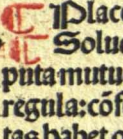 Place
Solu
puta mutu
regula: cōf
tas habet